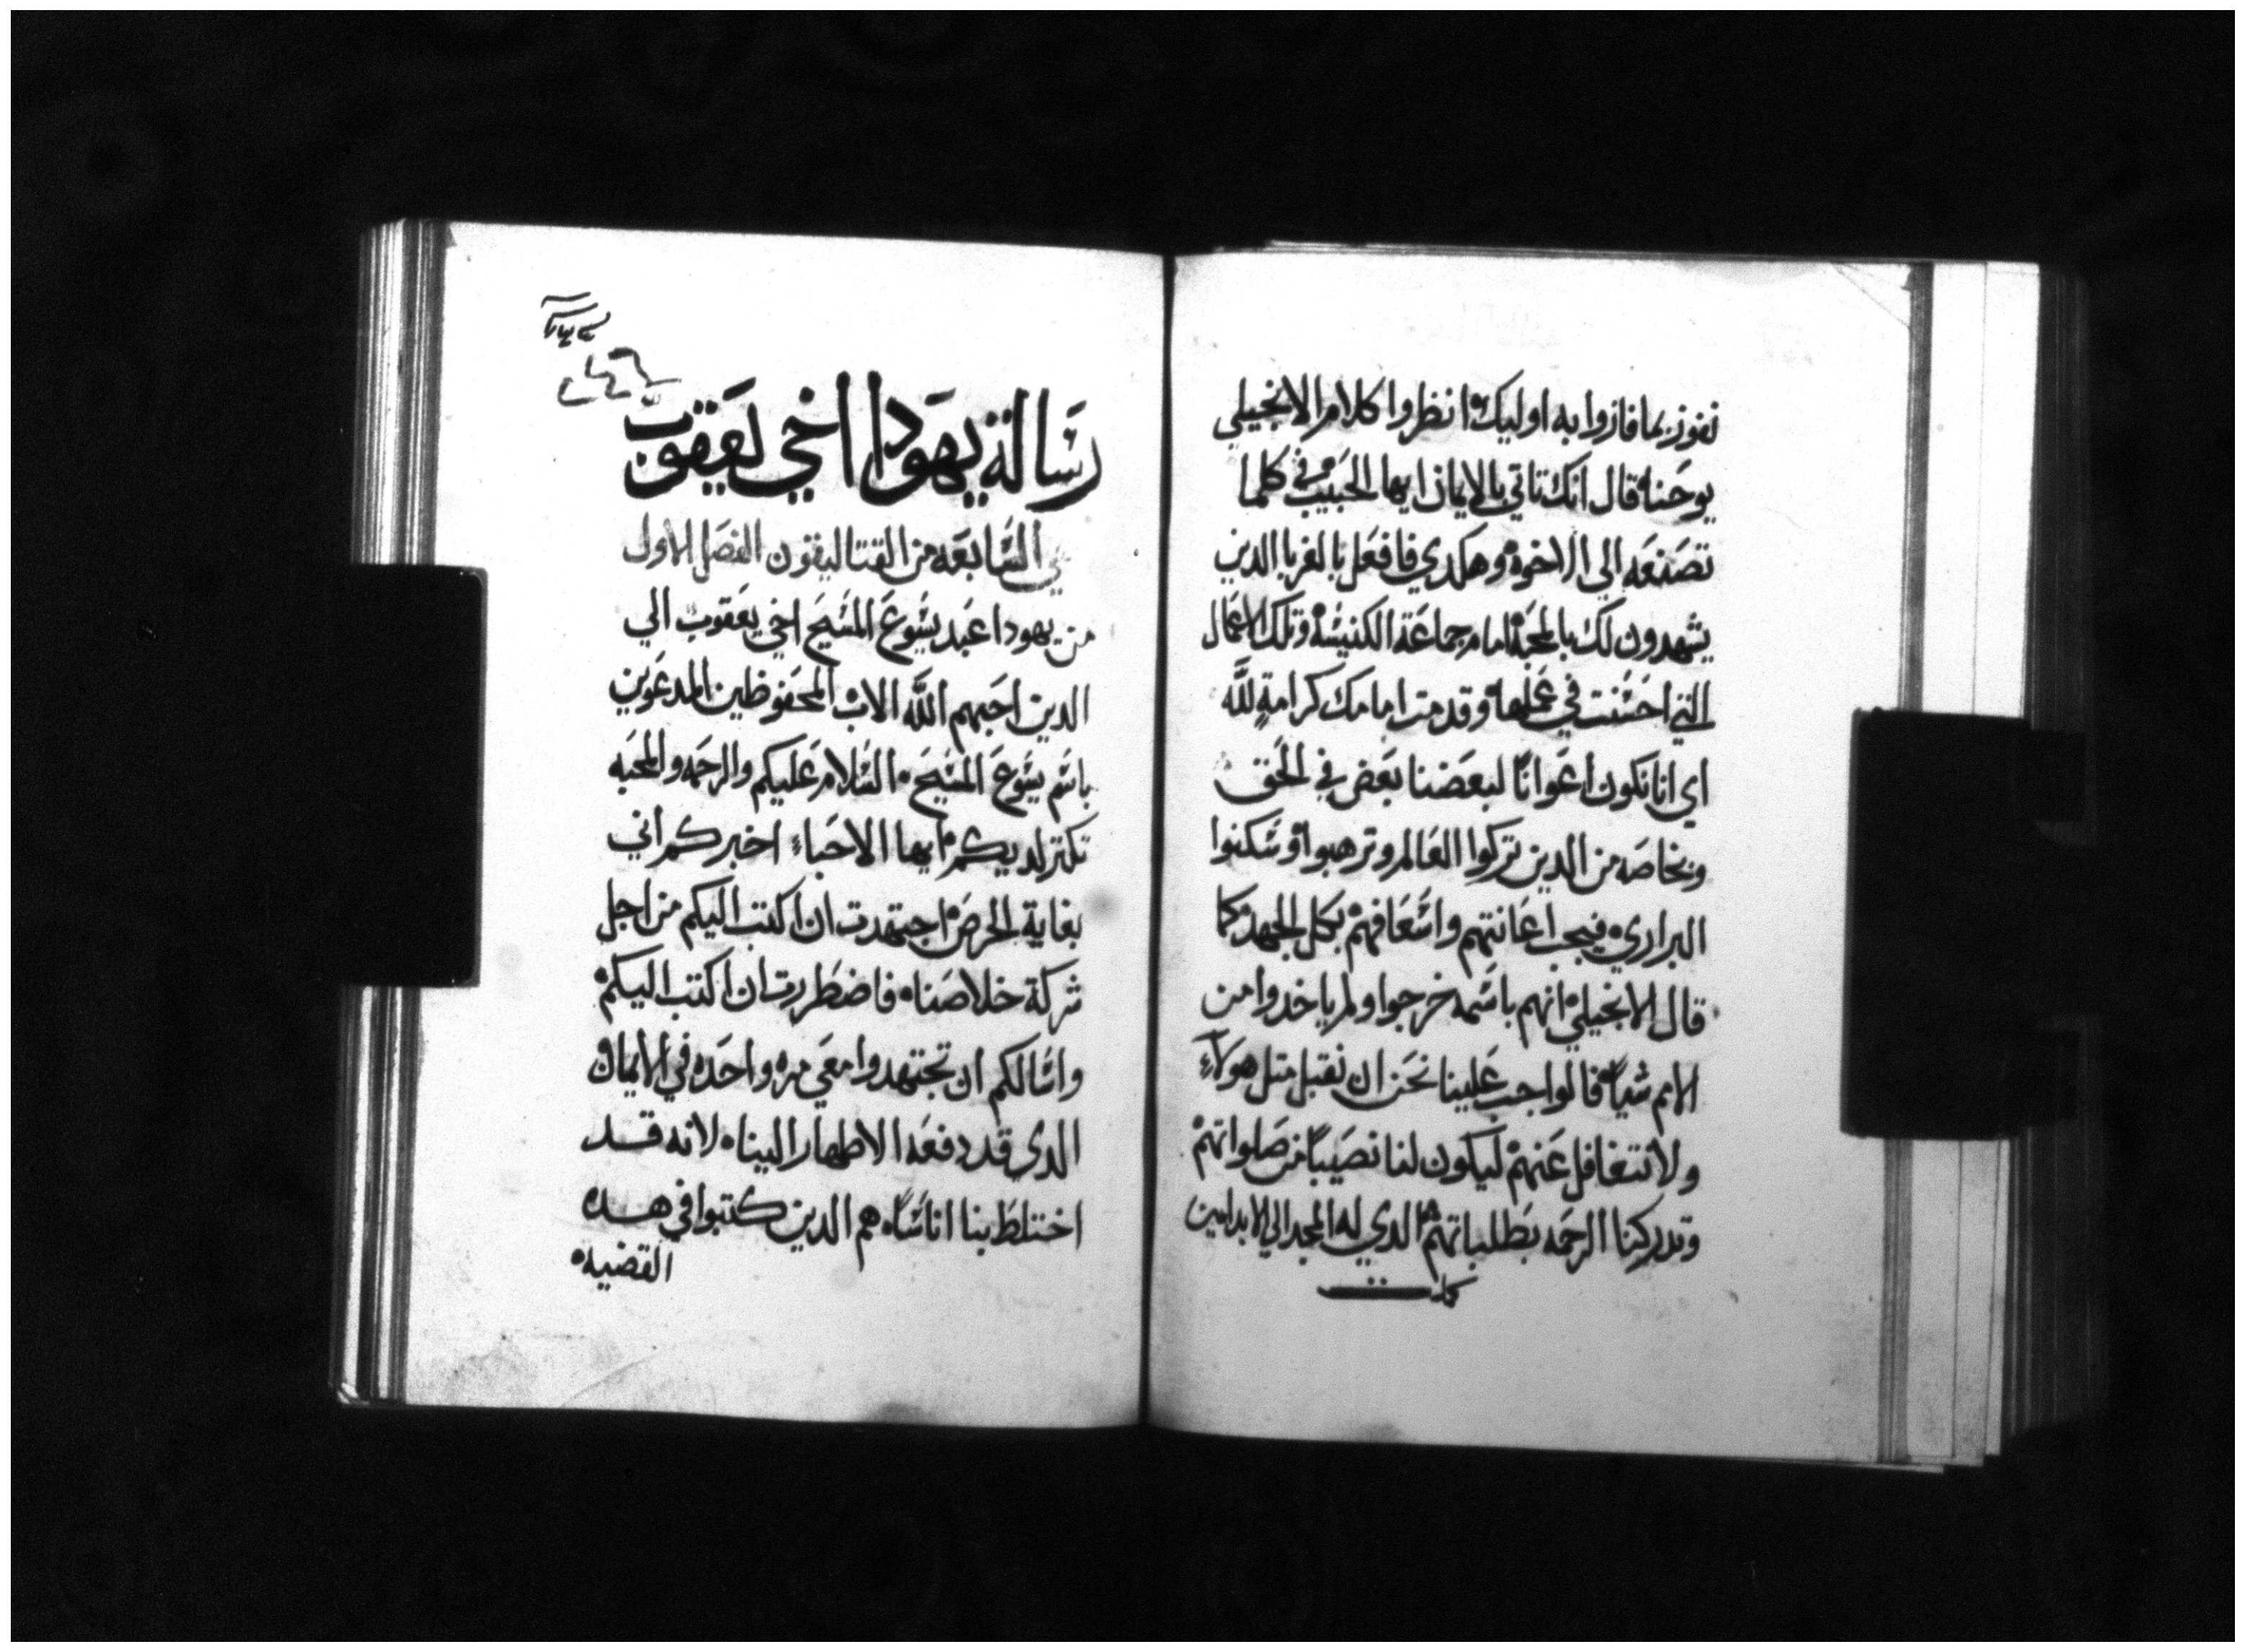 نفوز بما فازوا به اوليك٥ انظروا كلام الانجيلي
يوحنا٥ قال انك تاتي بالايمان ايها الحبيب٥ في كلما
تصنعه الي الاخوه٥ وهكدي فافعل بالغربا الدين
يشهدون لك بالمحبه٥ امام جماعة الكنيسه٥ وتلك الاعمال
التي احسنت في عملها٥ وقدمت امامك كرامةٍ لله
اي اننا نكون اعواناً لبعضنا بعض في الحق
وبخاصه من الدين تركوا العالم وترهبوا٥ وسكنوا
البراري٥ فيجب اعانتهم واسعافهم٥ بكل الجهد٥ كما
قال الانجيلي٥ انهم باسمه خرجوا ولم ياخدوا من
الامم شياً٥ فالواجب علينا نحن ان نقبل متل هولاءِ
ولا نتغافل عنهم٥ ليكون لنا نصيباً من صلواتهم٥
وتدركنا الرحمه بطلباتهم٥ الدي له المجد الي الابد امين
رسالة يهودا اخي يعقوب
السابعه من القتاليقون الفصل الاول
من يهودا عبد يسوع المسيح اخي يعقوب الي
الدين احبهم الله الاب٥ المحفوظين المدعوين
باسم يسوع المسيح٥ السلام عليكم والرحمه والمحبه
تكتر لديكم٥ ايها الاحباءِ اخبركم اني
بغاية الحرص٥ اجتهدت ان اكتب اليكم من اجل
شركة خلاصنا٥ فاضطررت ان اكتب اليكم٥
واسالكم ان تجتهدوا معي مره واحده في الايمان٥
الدي قد دفعه الاطهار الينا٥ لانه قد
اختلط بنا اناساً٥ هم الدين كتبوا في هده
القضيه٥